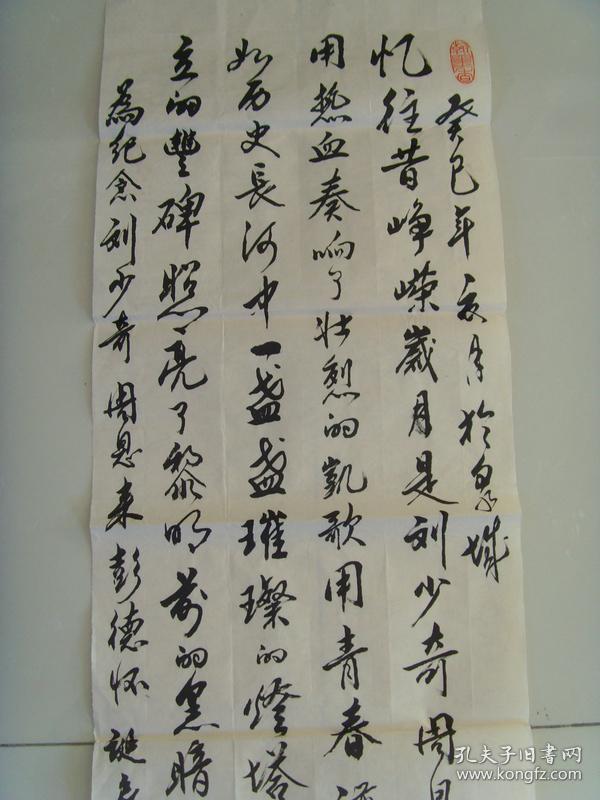 癸巳年夏月於泉城
忆往昔峥嵘歲月是刘少奇周恩
用热血奏响了壮烈的凱歌用青春
如历史長河中一盏盏璀璨的燈塔
立的豐碑照亮了黎明前的黑暗
為纪念刘少奇周恩来彭德怀誕辰
孔夫子旧书网
www.kongfz.com